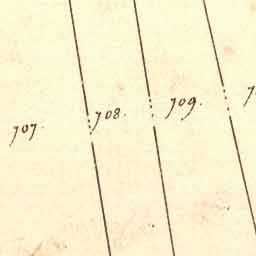 707.
708.
709.